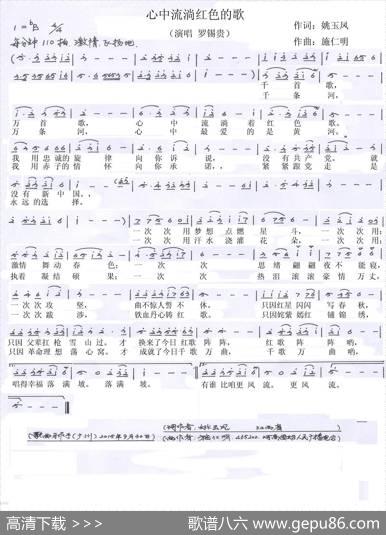 心中流淌红色的歌
(演唱 罗锡贵)
作词:姚玉凤
作曲:施仁明
每分钟110拍 激情、飞扬地
千首歌,
千条河,
万首歌, 心中流淌着红色歌,
万条河, 心中最爱的是黄河。
我用忠诚的旋律向你诉说, 没有共产党,就
我用赤子的情怀向你承诺, 紧紧跟党走是
没有新中国。
永远的选择。
一次次用梦想点燃星斗,一次次用
一次次用汗水浇灌花朵,一次次用
激情舞动春色; 一次次思绪翩翩夜不能寝,
执着凝结硕果; 一次次热泪滚滚豪情万丈,
一次次攻坚,曲不惊人誓不休。只因红星闪闪写春秋,
一次次跋涉,铁血丹心铸红歌。只因姹紫嫣红铺锦绣,
只因父辈扛枪雪山过。才换来了今日红歌阵阵,红歌阵阵哟,
只因革命理想荡心窝。才成就了今日千歌万曲,千歌万曲哟,
唱得幸福落满坡。落满坡。有谁比咱更风流。更风流。
高清下载 >>>
歌谱八六 www.gepu86.com